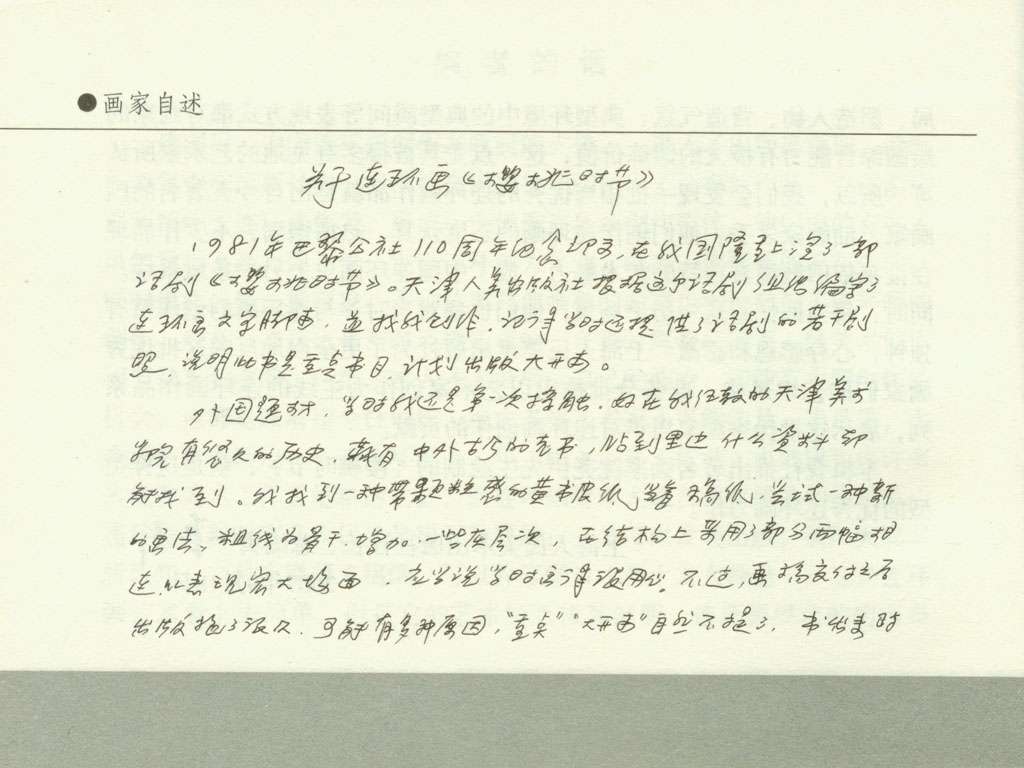 ●画家自述
关于连环画《樱桃时节》
1981年巴黎公社110周年纪念前夕,在我国隆重上演了部
话剧《樱桃时节》。天津人美出版社根据这个话剧组织编写了
连环画文字脚本,并找我创作,记得当时还提供了话剧的若干剧
照,说明此书是重点书目,计划出版大开本。
外国题材,当时我还是第一次接触,好在我任教的天津美术
学院有悠久的历史,藏有中外古今的老书,钻到里边什么资料都
能找到。我找到一种带颗粒感的黄书皮纸,当着画稿纸,尝试一种新
的画法,粗线为骨干,增加一些灰层次,在结构上采用了部分两幅相
连,以表现宏大场面,应当说当时画得很用心。不过,画稿交付之后
出版拖了很久,可能有多种原因,"重点""大开本"自然不提了,书出来时